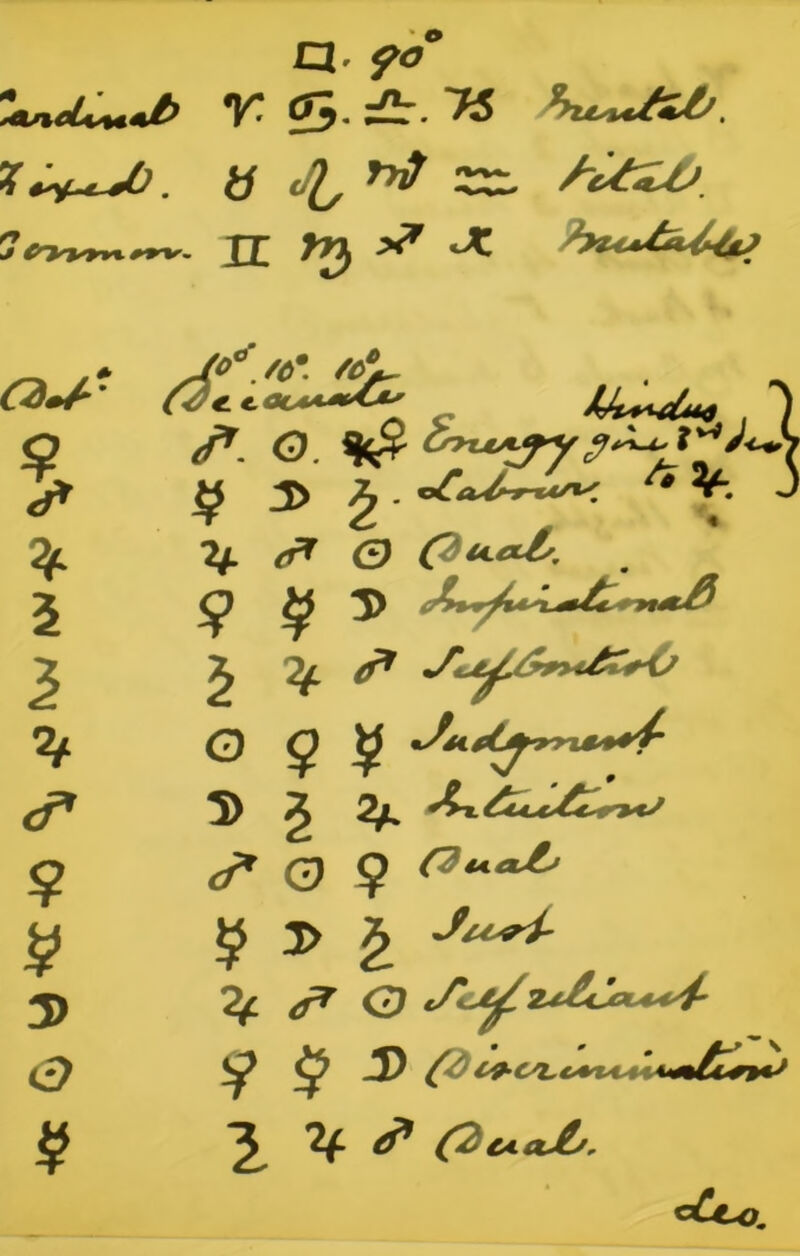 □. 90°
Cardinal ♈. ♋. ♎. ♑ Mental.
Fixed. ♉ ♌ ♏ ♒ Vital.
Common. ♊ ♍ ♐ ♓ Mutable.
10°. 10°. 10°
Det: Decanate Hindus
♀ ♂. ☉. ♀ Energy give
♂ ☿ ☽ ♄. Labour. to ♃.
♃ ♃ ♂ ☉ Dual.
♄ ♀ ☿ ☽ Inspirational
♄ ♄ ♃ ♂ Self Control
♃ ☉ ♀ ☿ Judgment
♂ ☽ ♄ ♃. Intuition
♀ ♂ ☉ ♀ Dual
☿ ☿ ☽ ♄ Just
☽ ♃ ♂ ☉ Self reliant
☉ ♀ ☿ ☽ Discrimination
☿ ♄ ♃ ♂ Dual.
Leo.